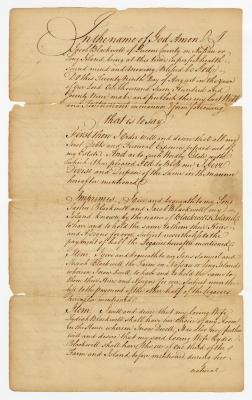 In the name of God Amen I
Jacob Blackwell of Queens County on Nassau or
Long Island being at this time in perfect health
sound mind and memory Blessed be God
Do this Twenty Ninth Day of August in the year
of our Lord One thousand Seven Hundred And
Seventy make and publish this my Last Will
and testament in manner Following
that is to say
First that I order will and desire that all my
Just Debts and Funeral Expences be paid out of
my Estate And as to such Worldly Estate with
which it has pleased God to Bless me I Give
Devise and Dispose of the same in the manner
hereafter mentioned
Imprimis I give and bequeath to my Sons
James Blackwell and Jacob Blackwell my
Island known by the name of Blackwells Island
to have and to hold the same to them their Heirs
and Assigns for ever Subject nevertheless to the
payment of half the Legacies hereafter mentioned
Item I give and bequeath to my Sons Samuel and
Josiah Blackwell the Farm on Nassau or Long Island
whereon I now Dwell to have and to hold the same to
them their Heirs and Assigns for ever Subject never the
less to the payment of the other half of the Legacies
hereafter mentioned
Item I will and desire that my loving Wife
Lydia Blackwell shall have her choice of any Room
in the House wherein I now Dwell Also it is my further
will and desire that my said loving Wife Lydia
Blackwell shall have the use of one third of the
Farm and Island before mentioned during her
natural